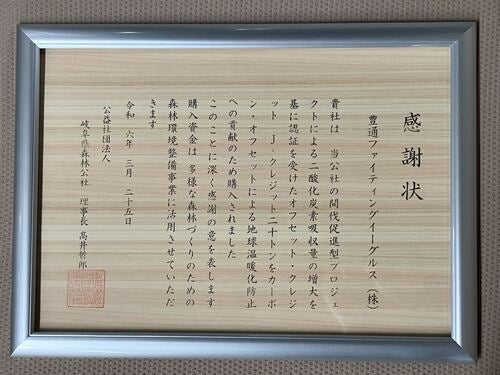 感謝状
豊通ファイティングイーグルス（株）
貴社は 当公社の間伐促進型プロジェ
クトによる二酸化炭素吸収量の増大を
基に認証を受けたオフセット・クレジ
ット J‐クレジット二十トンをカーボ
ン・オフセットによる地球温暖化防止
への貢献のため購入されました
このことに深く感謝の意を表します
購入資金は 多様な森林づくりのための
森林環境整備事業に活用させていただ
きます
令和 六年 三月 二十五日
公益社団法人
岐阜県森林公社 理事長 高井哲郎